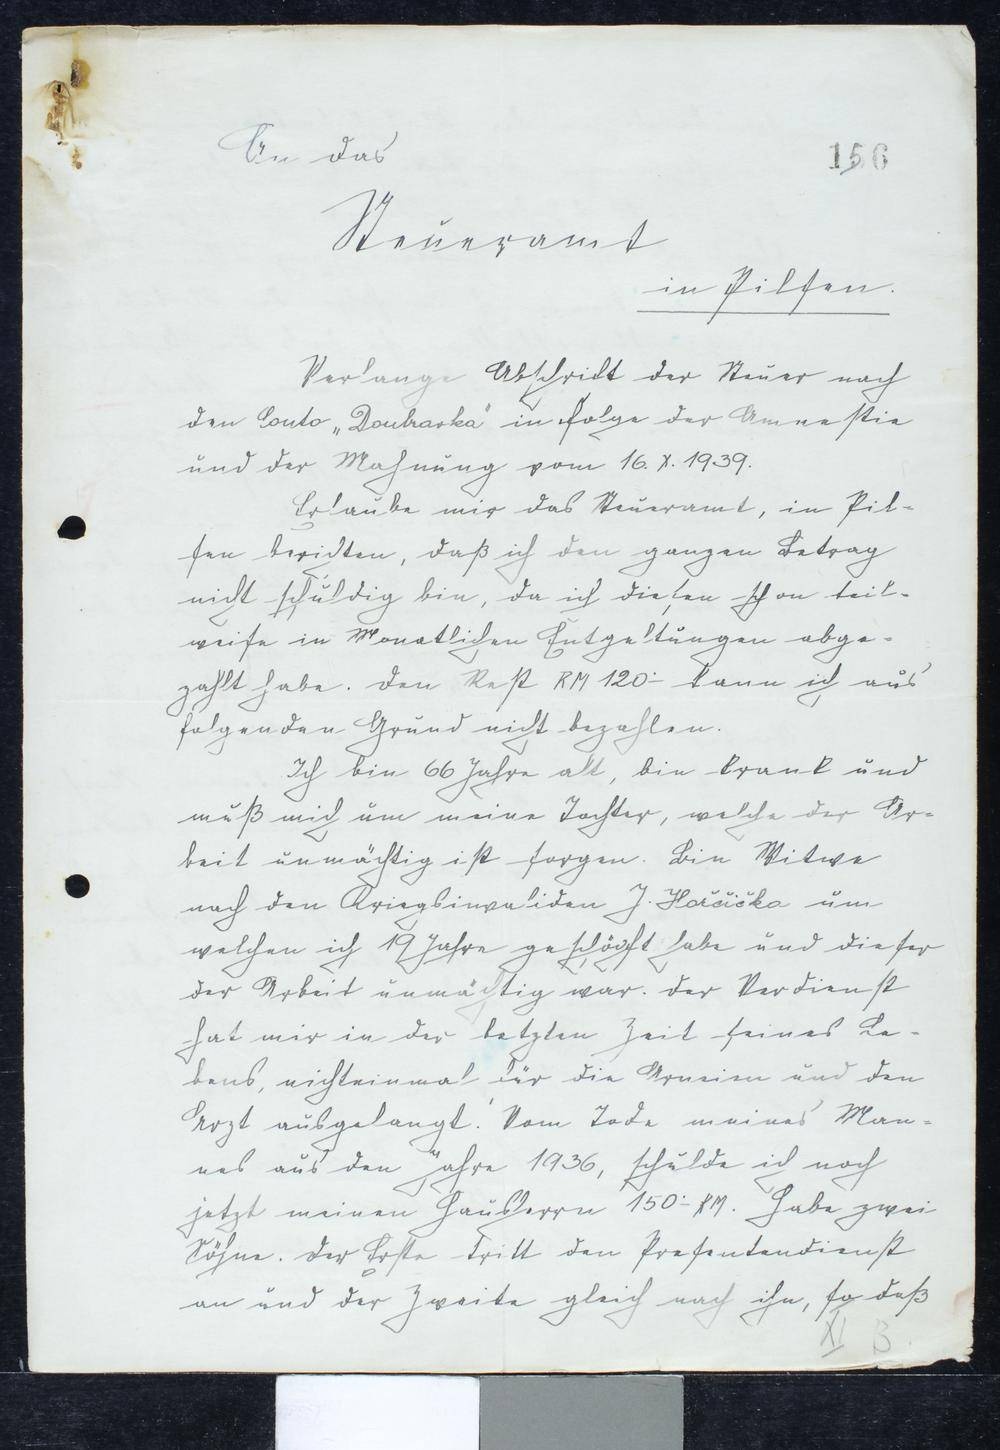 An das
156
Steueramt
in Pilsen.
Verlange Abschricht der Steuer nach
den Conto „Doubravka" in folge der Amnestie
und der Mahnung vom 16. X. 1939.
Erlaube mir das Steueramt, in Pil-
sen berichten, daß ich den ganzen Betrag
nicht schuldig bin, da ich diesen schon teil-
weise in Monatlichen Entgeltungen abge-
zahlt habe. Den Rest RM 120·- kann ich aus
folgenden Grund nicht bezahlen.
Ich bin 66 Jahre alt, bin krank und
muß mich um meine Tochter, welche der Ar-
beit unmächtig ist sorgen. Bin Witwe
nach den Kriegsinvaliden J. Horčička um
welchen ich 19 Jahre geschöpft habe und dieser
der Arbeit unmächtig war. Der Verdienst
hat mir in der letzten Zeit seines Le-
bens, nichteinmal für die Arneien und den
Arzt ausgelangt. Vom Tode meines Man-
nes aus den Jahre 1936, schulde ich noch
jetzt meinen Hausherrn 150·- RM. Habe zwei
Söhne. Der Erste tritt den Presentendienst
an und der Zweite gleich nach ihn, so daß
XI B.